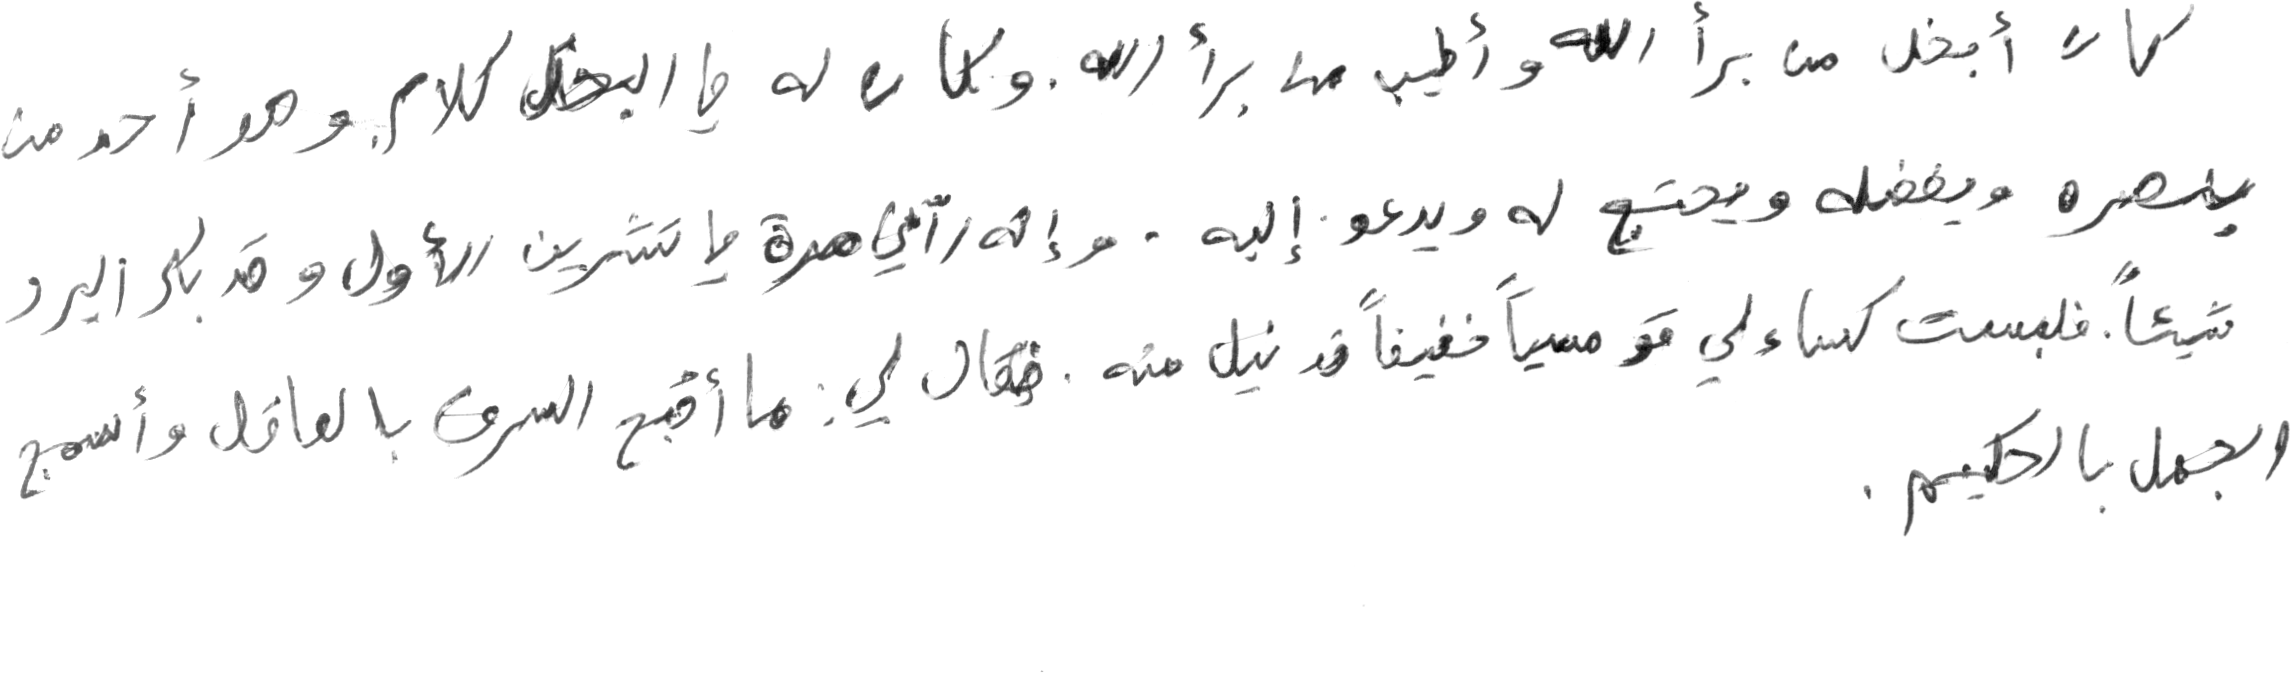 كان أبخل من برأ الله وأطيب من برأ الله. وكان له في البخل كلام، وهو أحد من
ينصره ويفضله ويحتج له ويدعو إليه. وإنه رآني مرة في تشرين الأول وقد بكر البرد
شيئاً. فلبست كساء لي قومسياً خفيفاً قد نيل منه. فقال لي: ما أقبح السرف بالعاقل وأسمج
الجهل بالحكيم.